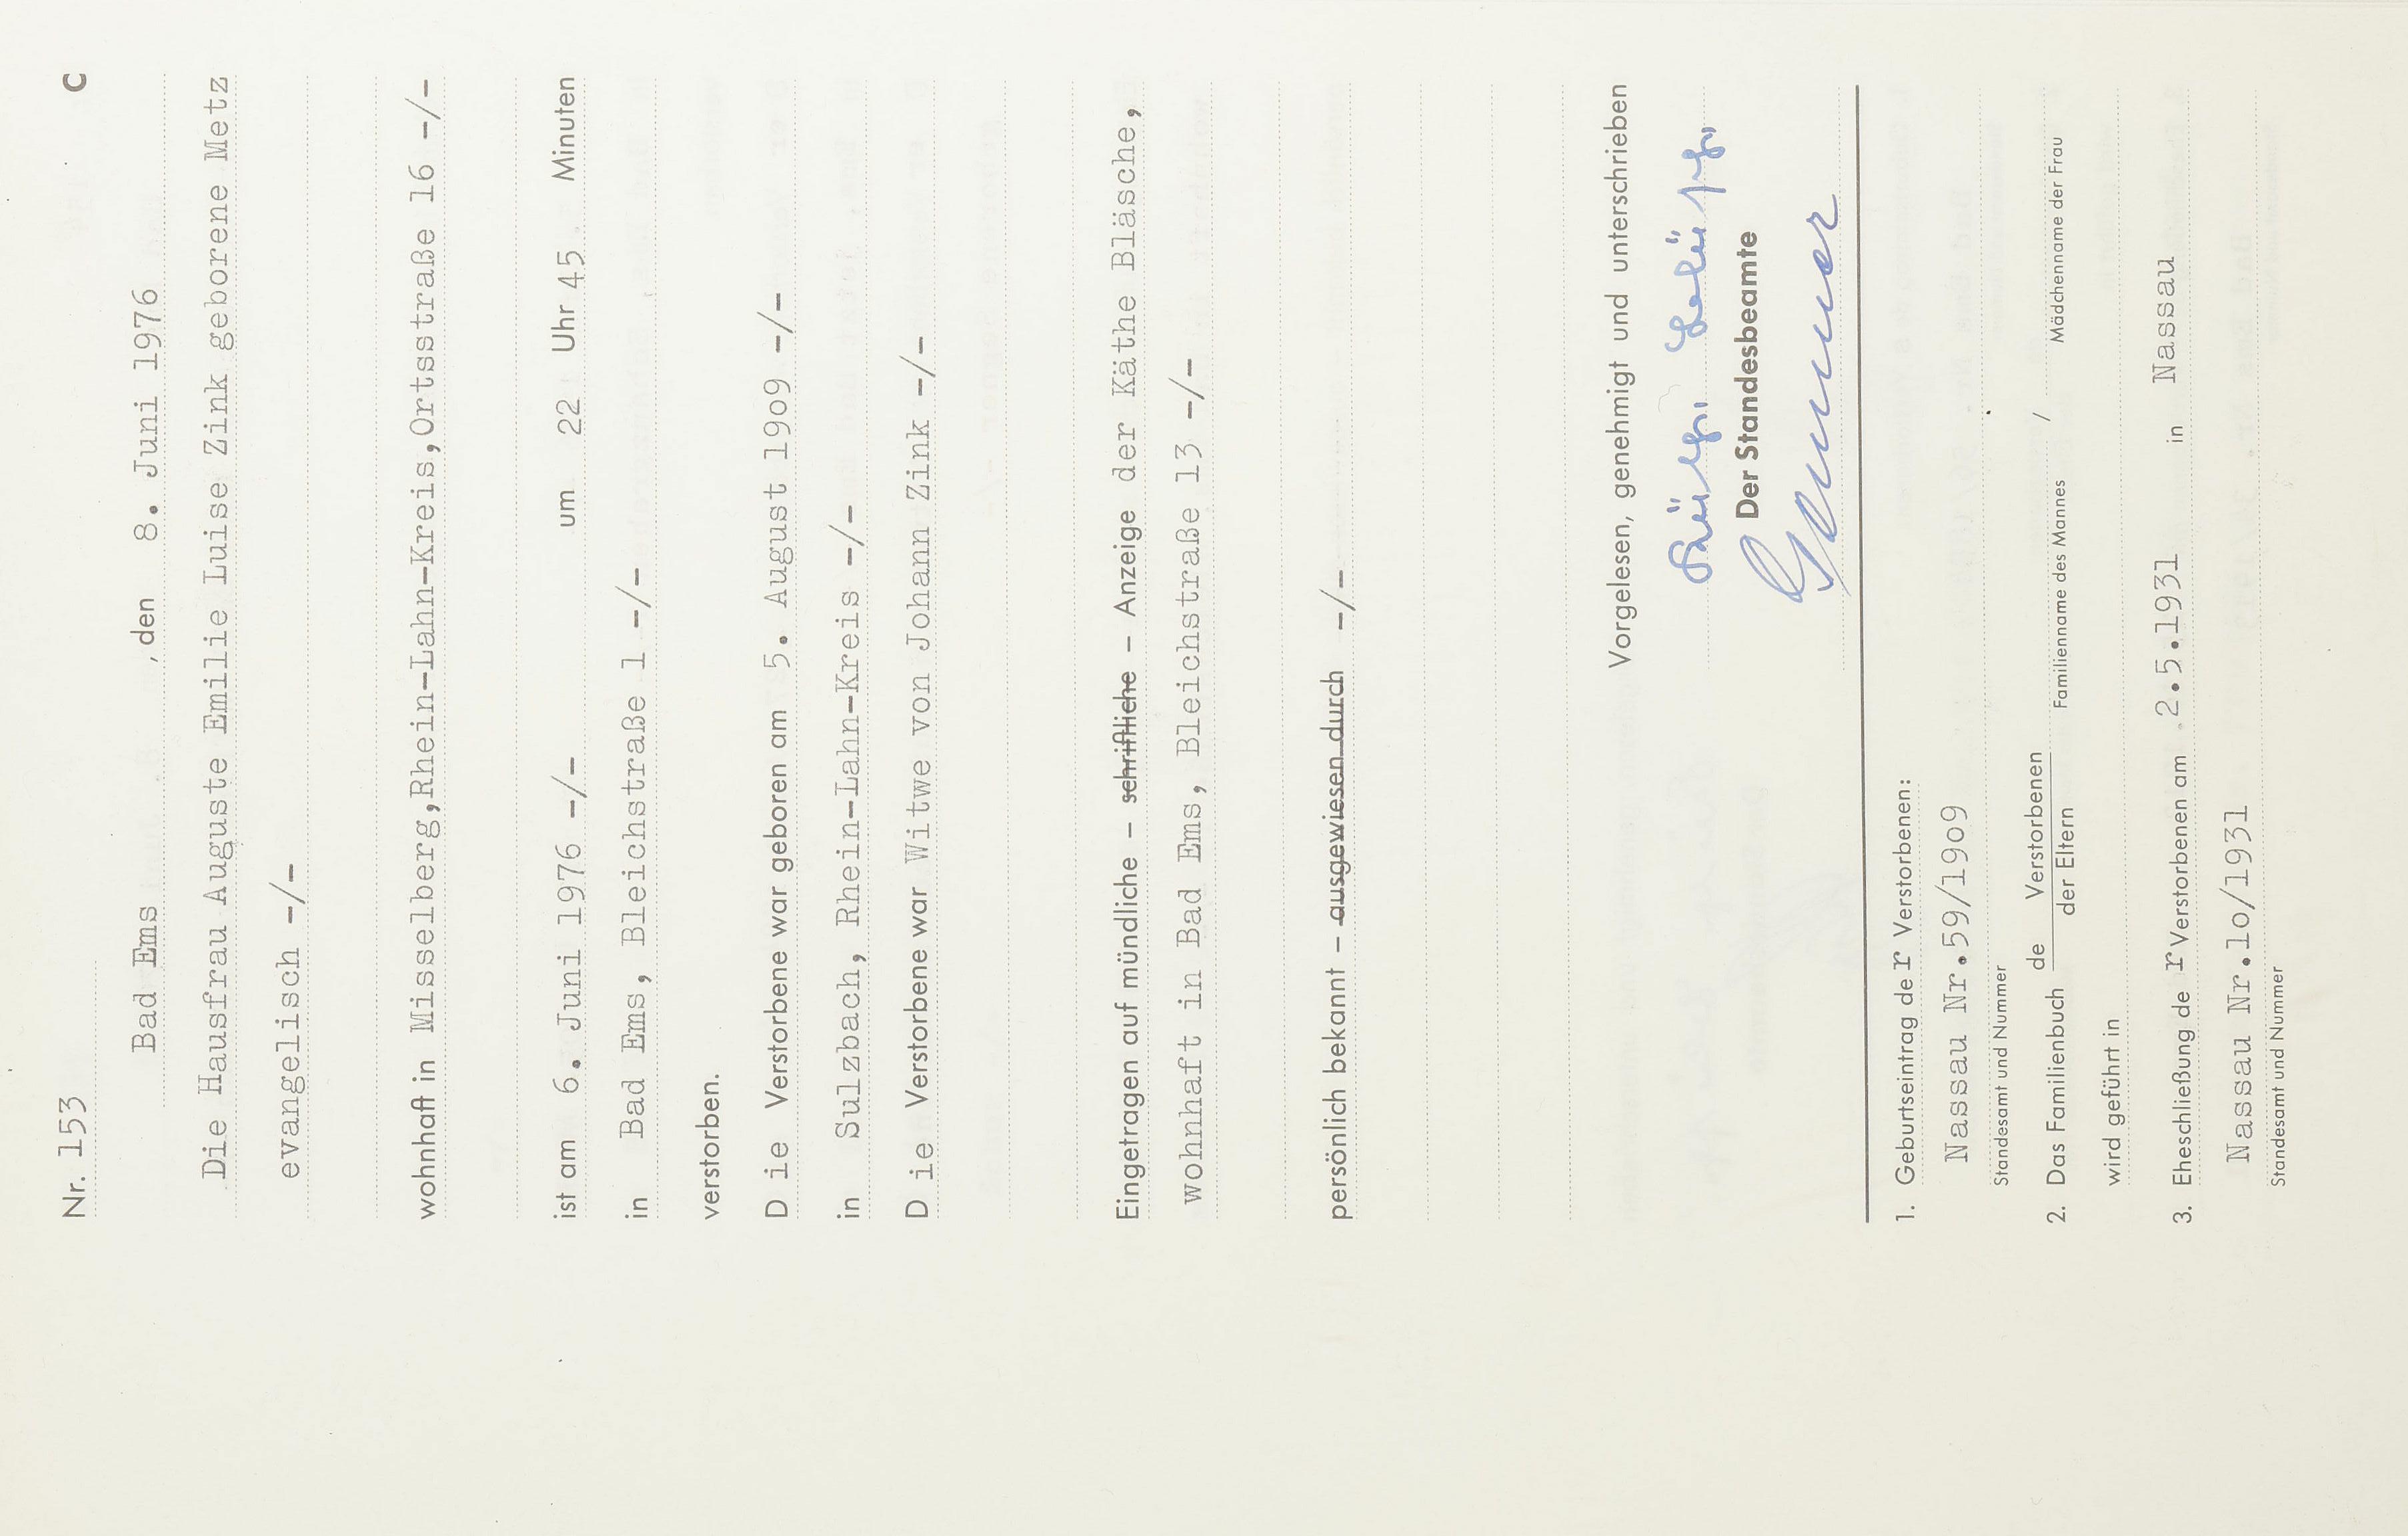 Nr. 153 C
Bad Ems , den 8. Juni 1976
Die Hausfrau Auguste Emilie Luise Zink geborene Metz
evangelisch -/-
wohnhaft in Misselberg,Rhein-Lahn-Kreis,Ortsstraße 16 -/-
ist am 6. Juni 1976 -/- um 22 Uhr 45 Minuten
in Bad Ems, Bleichstraße 1 -/-
verstorben.
D ie Verstorbene war geboren am 5. August 19o9 -/-
in Sulzbach, Rhein-Lahn-Kreis -/-
D ie Verstorbene war Witwe von Johann Zink -/-
Eingetragen auf mündliche – schriftliche – Anzeige der Käthe Bläsche,
wohnhaft in Bad Ems, Bleichstraße 13 -/-
persönlich bekannt – ausgewiesen durch -/-
Vorgelesen, genehmigt und unterschrieben
Der Standesbeamte
1. Geburtseintrag de r Verstorbenen:
Nassau Nr.59/19o9
Standesamt und Nummer
2. Das Familienbuch de Verstorbenen / der Eltern /
Familienname des Mannes Mädchenname der Frau
wird geführt in
3. Eheschließung de r Verstorbenen am 2.5.1931 in Nassau
Nassau Nr.1o/1931
Standesamt und Nummer